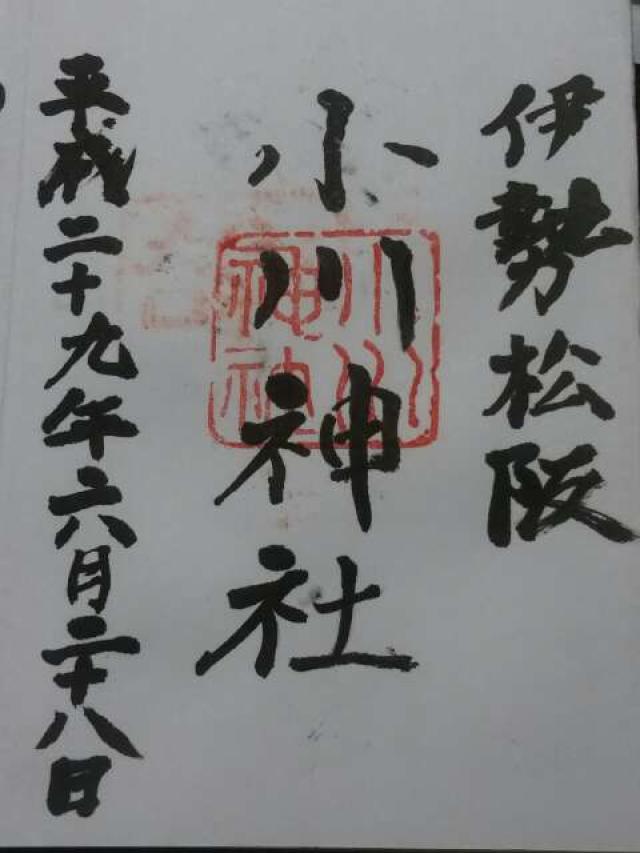 伊勢松阪
小川神社
小川神社
平成二十九年六月二十八日